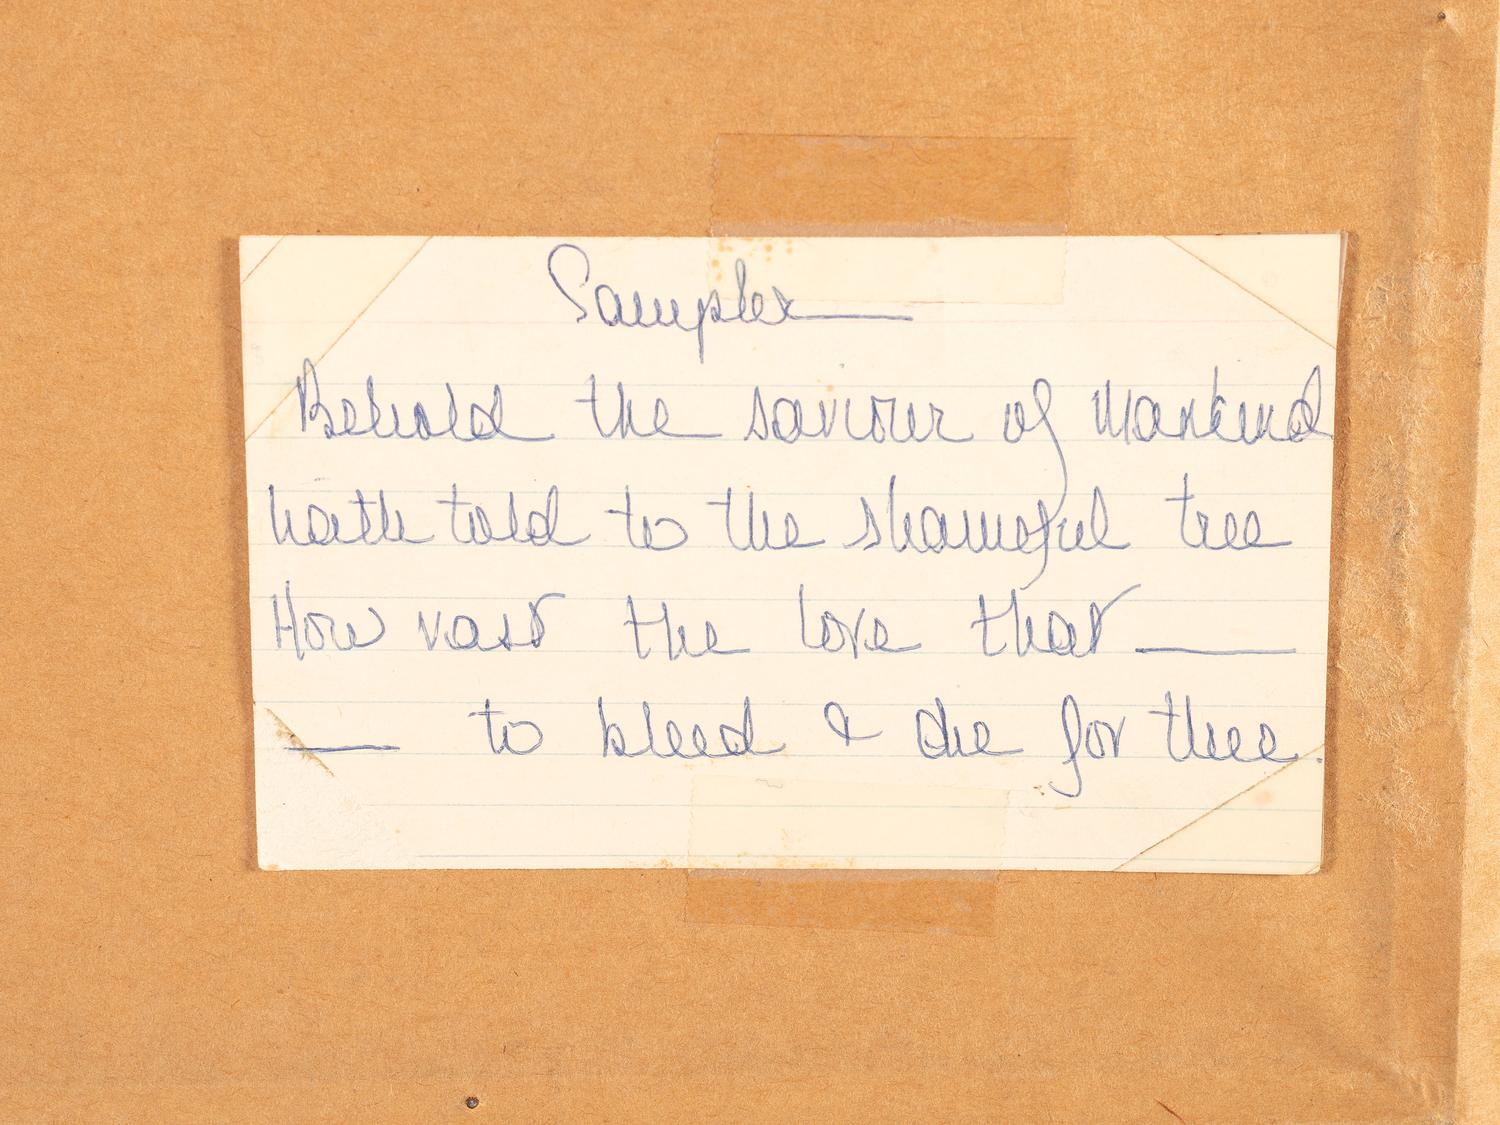 Sampler
Behold the saviour of Mankind
hath told to the shameful tree
How vast the love that
to bleed & die for thee.